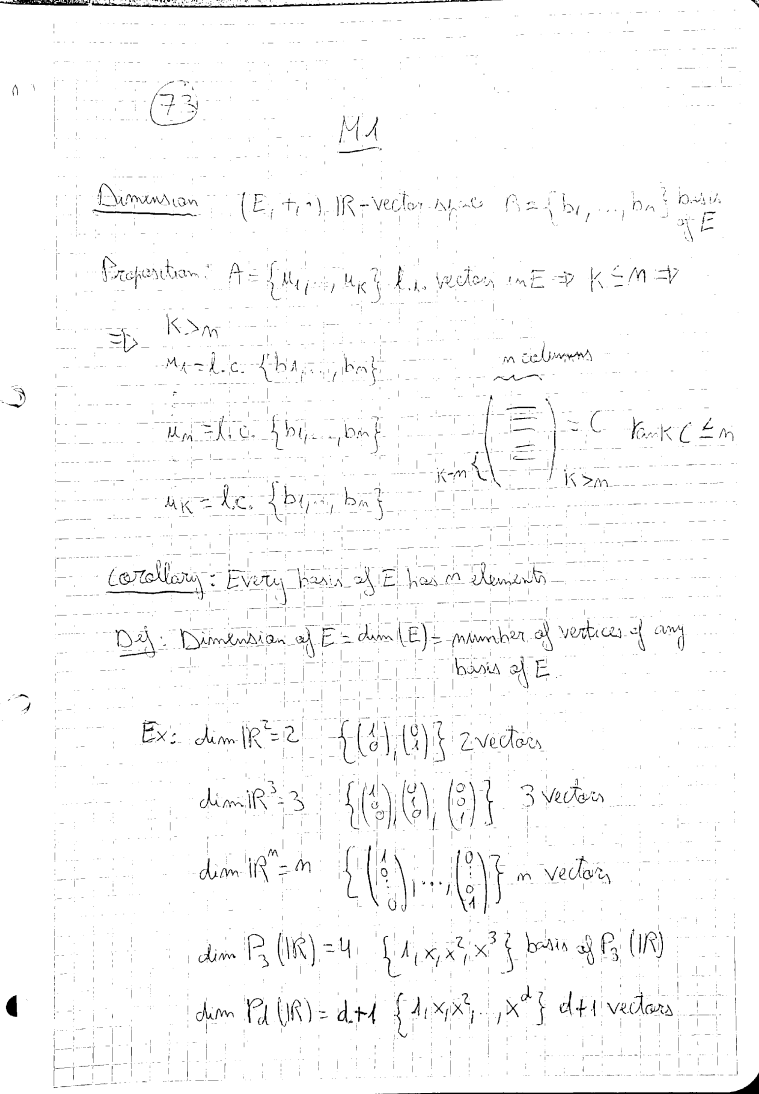 73
M1
Dimension (E, +, ·) IR-vector space B = {b1, ..., bn} basis of E
Proposition: A = {u1, .., uK} l.i. vectors in E ⇒ K ≤ n ⇒
⇒ K > n
u1 = l.c. {b1, ..., bn}
⋮
un = l.c. {b1, ..., bn}
uK = l.c. {b1, .., bn}
n columns
K-n { ( ) = C rank C ≤ n
K > n
Corollary: Every basis of E has n elements
Def: Dimension of E = dim(E) = number of vertices of any
basis of E
Ex: dim IR² = 2 {(1 0), (0 1)} 2 vectors
dim IR³ = 3 {(1 0 0), (0 1 0), (0 0 1)} 3 vectors
dim IRⁿ = n {(1 0 ⋮ 0), ..., (0 0 ⋮ 0 1)} n vectors
dim P₃(IR) = 4 {1, x, x², x³} basis of P₃(IR)
dim Pd(IR) = d+1 {1, x, x², .., x^d} d+1 vectors